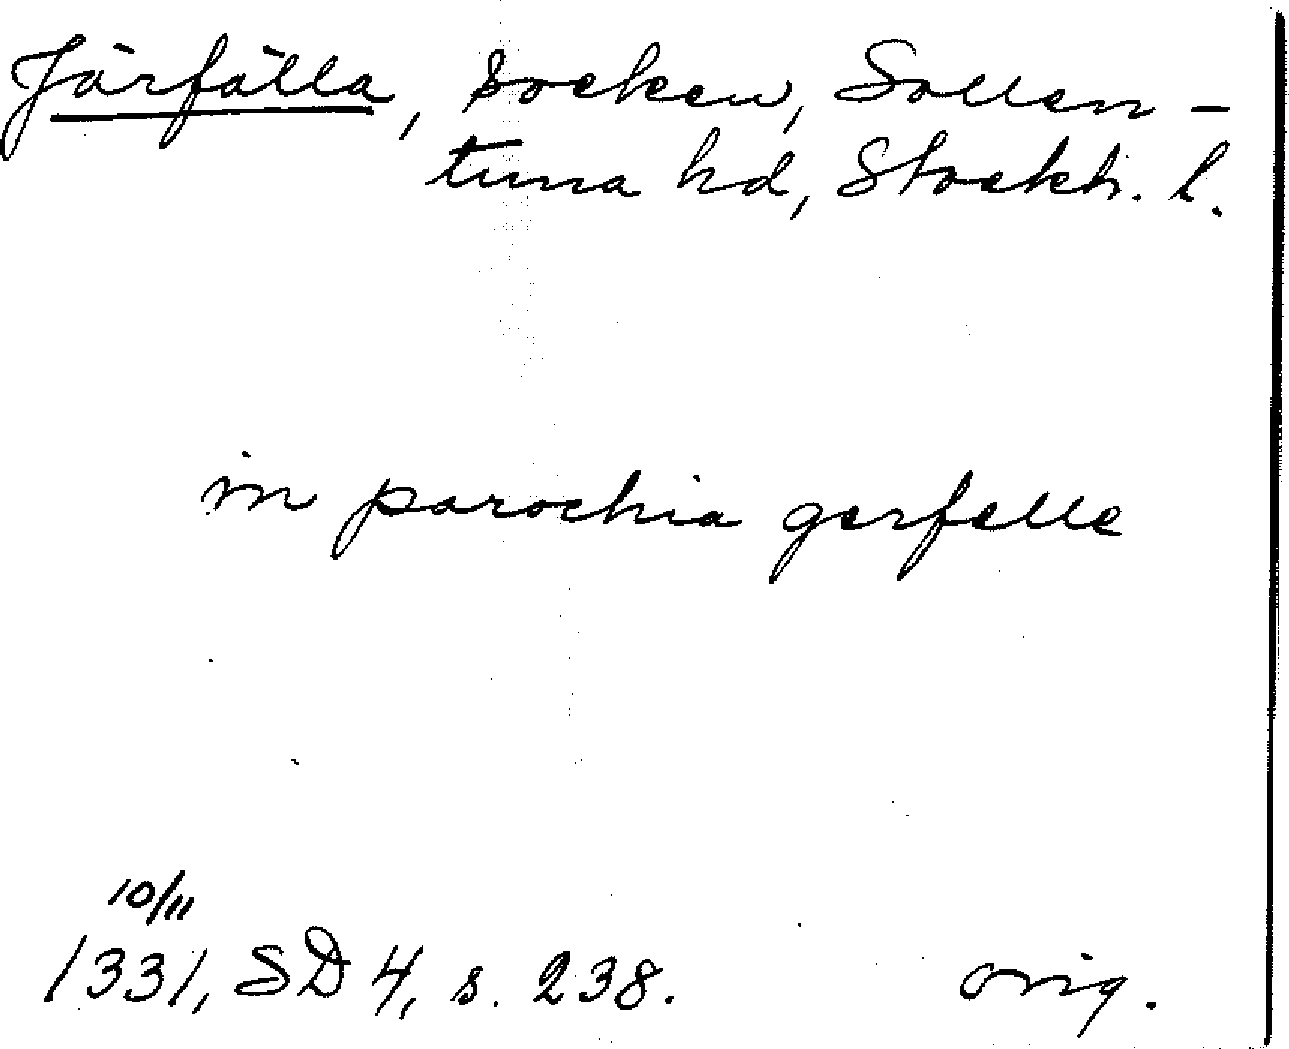 Järfälla, socken, Sollen-
tuna hd, Stockh. l.
in parochia gerfelle
10/11
1331, SD 4, s. 238. orig.